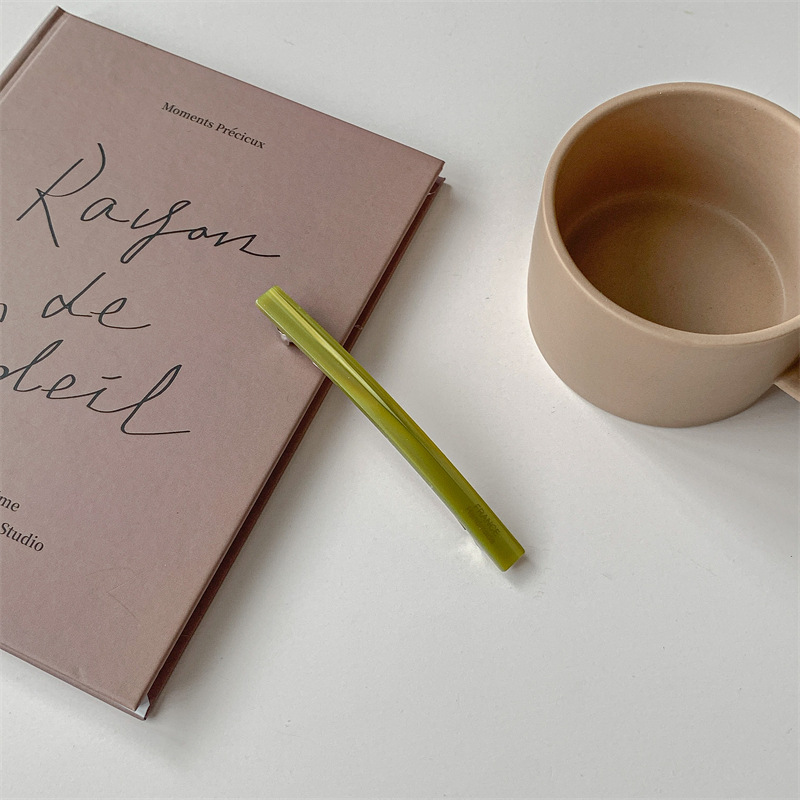 Moments Précieux
Rayon
de
oleil
me
Studio
FRANCE